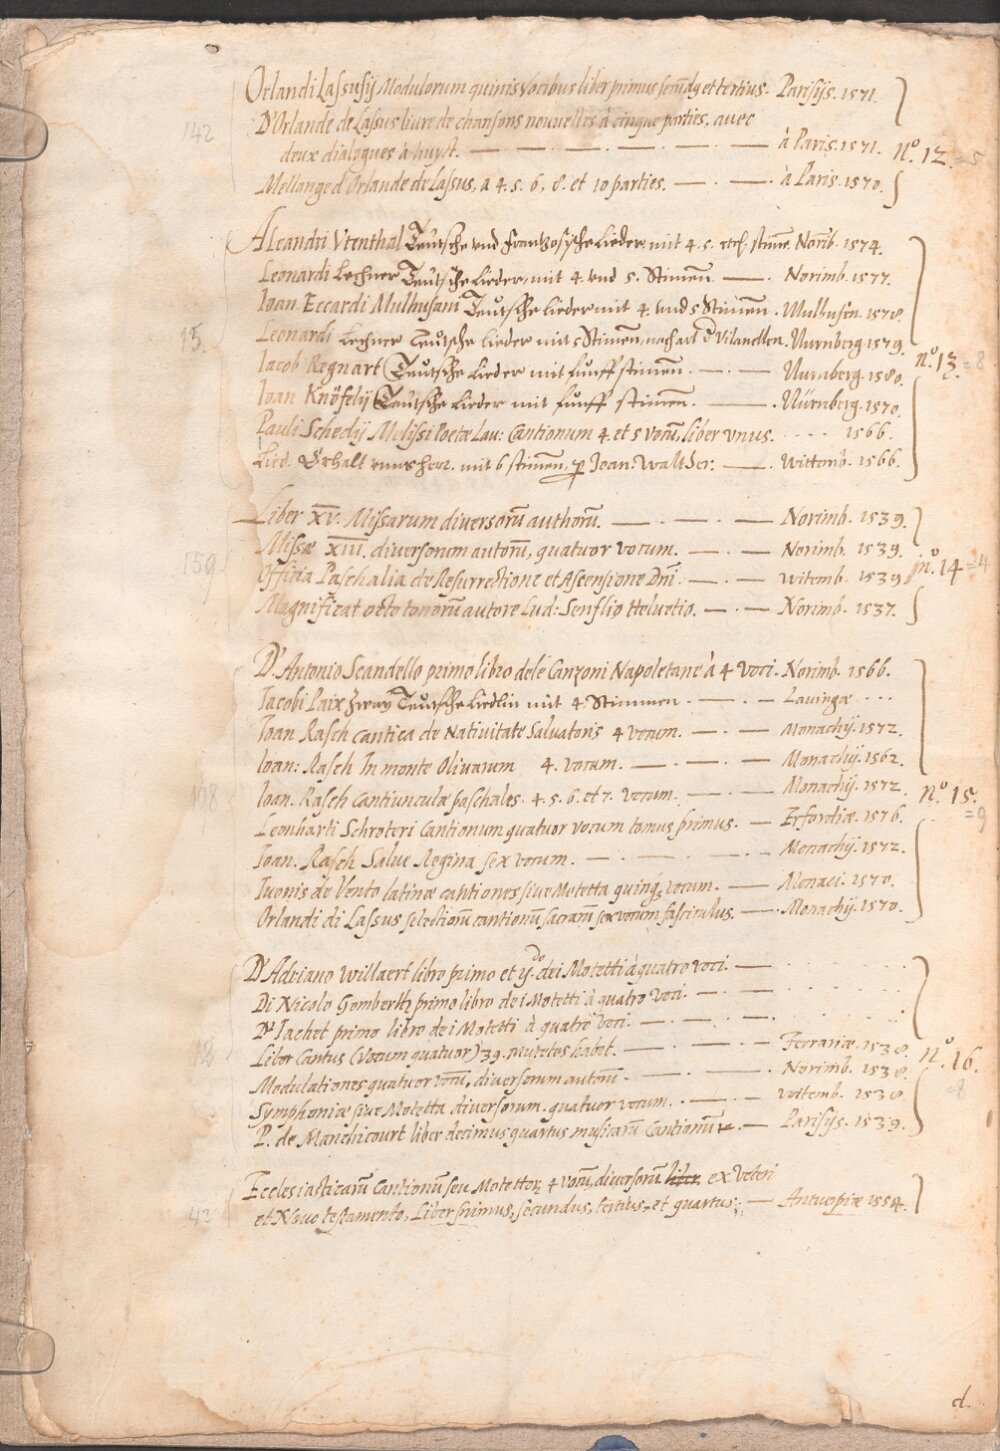 Orlandi Lassusij Modulorum quinis Vocibus liber primus secūdq et tertius. Parisijs. 1571.
D'Orlande de Lassus livre de chansons nouvelles à cinque parties, avec
142
deux dialogues à huyt. — · — · — · — · — · — à Paris. 1571. nº. 12. = 5
Mellange d'Orlande de Lassus, a 4. 5. 6. 8. et 10 parties. — · — · à Paris. 1570.
Alexandri Vtenthal Teütsche vnd Frantzosysche Lieder mit 4. 5. stim̄e. Norib. 1574.
Leonardi Lechner Teütsche Lieder, mit 4. vnd 5. Stimen̄ — · Norimb. 1577.
Ioan. Eccardi Mulhusani Teütsche lieder mit 4. vnd 5 Stimen̄ . Mulhusen. 1578.
15.
Leonardi Lechner Teütsche lieder mit 5 Stimen̄, nach art d Vilanellen. Nurnberg. 1579.
Iacob Regnart Teütsche Lieder mit fünff stimen̄. — · — · Nurnberg. 1580. nº. 13. = 8
Ioan Knöfelij Teütsche Lieder mit fünff stimen̄. — · Nürnberg. 1570.
Pauli Schedij Melissi Poetæ Lau: Cantionum 4. et 5 vocū, liber vnus. · · · · 1566.
Lied. Erhalt vnns herr. mit 6 stimen̄, p Joan. Walther. — · Wittenb. 1566.
Liber XV. Missarum diversorū authorū. — · — · — Norimb. 1539.
Missæ XIII. diversorum autorū, quatuor vocum. — · — Norimb. 1539.
159
Officia Paschalia de Resurrectione et Ascensione Dnī. — · — Witemb. 1539. nº. 14 = 4
Magnificat octo tonorū autore Lud: Senflio Helvetio. — · — Norimb. 1537.
D'Antonio Scandello primo libro dele Canzoni Napoletane à 4 Voci. Norimb. 1566.
Iacobi Paix Zway Teütsche Liedlin mit 4. Stimmen. — · — Lavingæ · · ·
Ioan Rasch Cantica de Nativitate Salvatoris 4 vocum. — · — Monachij. 1572.
Ioan: Rasch In monte Olivarum 4. vocum. — · — · — Monachij. 1562.
Ioan. Rasch Cantiunculæ paschales. 4. 5. 6. et 7. vocum. — · — Monachij. 1572. nº. 15.
= 9
Leonharti Schroteri Cantionum quatuor vocum tomus primus. — Erfordiæ. 1576.
Ioan. Rasch Salve Regina sex vocum. — · — · — Monachij. 1572.
Ivonis de Vento latinæ cantiones sive Motetta quinq vocum. — Monaci. 1570.
Orlandi di Lassus selectiorū cantionū sacrarū sex vocum fasciculus. — · Monachij. 1570.
D'Adriano Willaert libro primo et ij.do dei Motetti à quatro voci. —
Di Nicolo Gomberth primo libro dei Motetti à quatro Voci. — · —
D' Iachet primo libro dei Motetti à quatro Voci. — · —
Liber Cantus (Vocum quatuor) 39. mutetos habet. — · — Ferrariæ. 1538. nº. 16.
8
Modulationes quatuor vocū, diversorum autorū. — · — · Norimb. 1538.
Symphoniæ sive Motetta diversorum. quatuor vocum. · — · — Witemb. 1538.
P. de Manchicourt liber decimus quartus musicarū Cantionū — · — Parisijs. 1539.
Ecclesiasticarū Cantionū seu Motettor 4 vocū, diversorū liber ex Veteri
43
et Novo testamento, Liber primus, secundus, tertius, et quartus; — Antverpiæ 1554.
d.